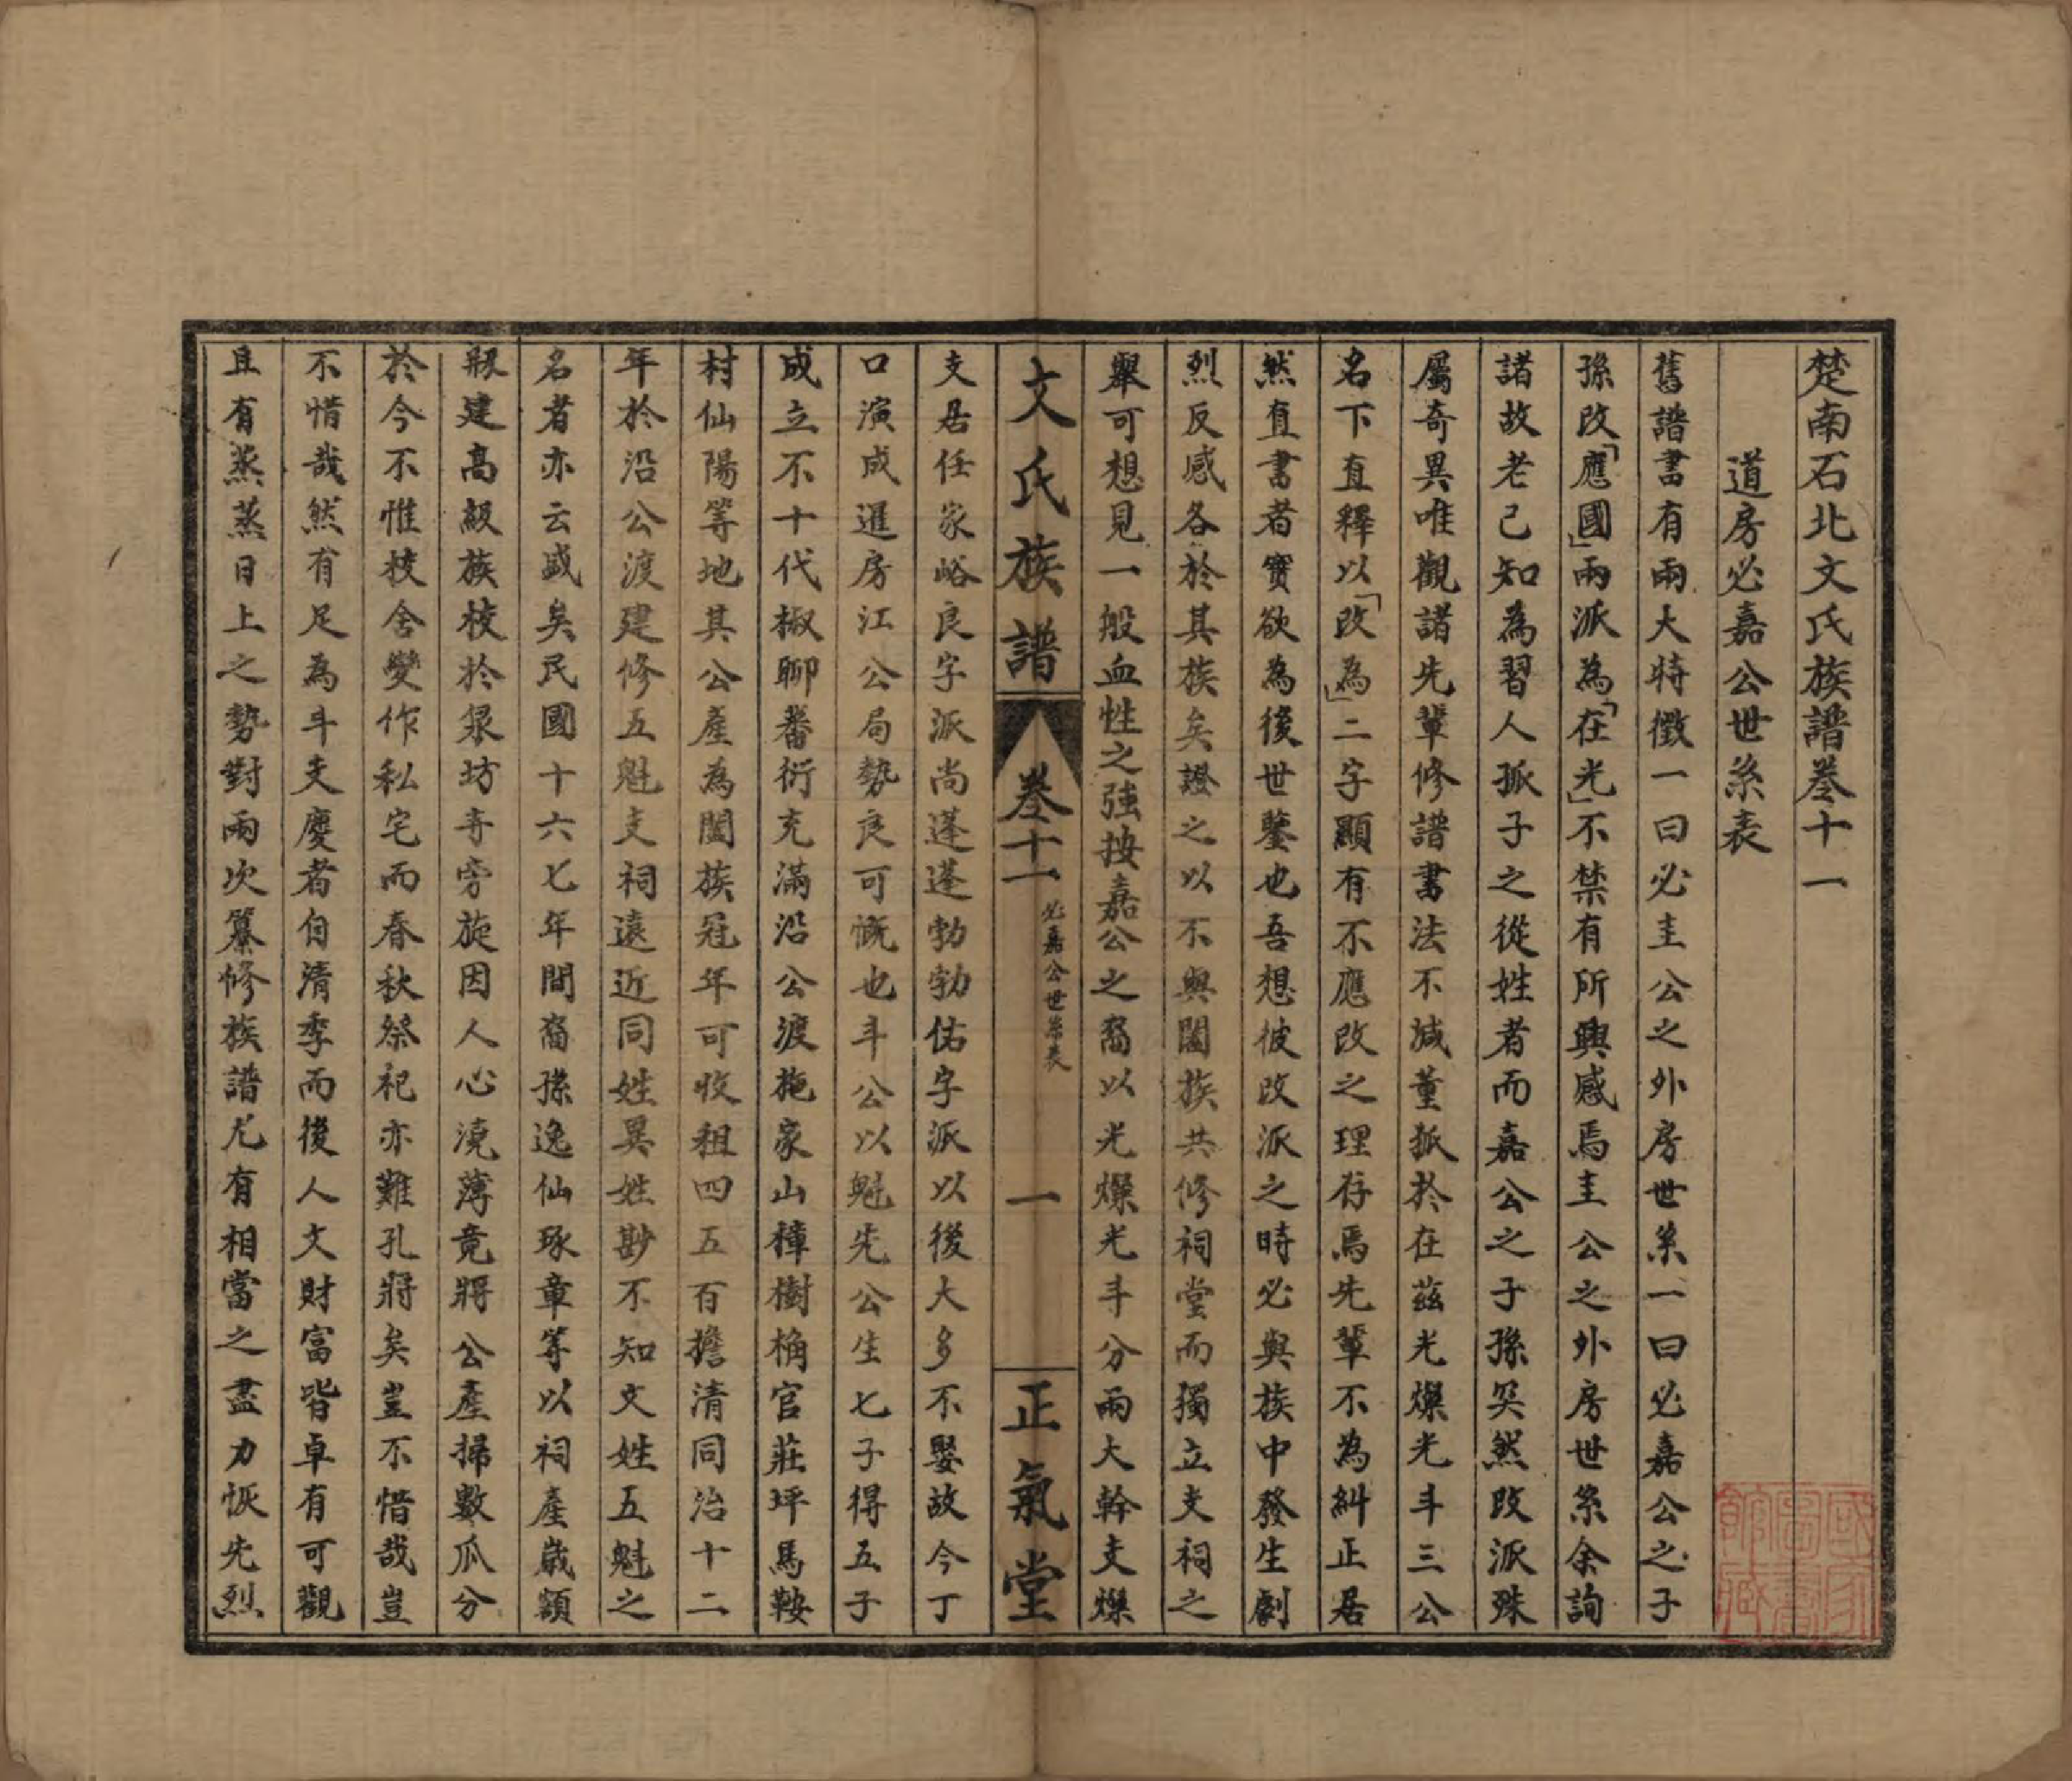 楚南石北文氏族譜卷十一
道房必嘉公世系表
舊譜書有兩大特徵一曰必圭公之外房世系一曰必嘉公之子
孫改「應國」兩派為「在光」不禁有所興感焉圭公之外房世系余詢
諸故老已知為習人孤子之從姓者而嘉公之子孫突然改派殊
屬奇異唯觀諸先輩修譜書法不減董狐於在茲光燦光斗三公
名下直釋以「改為」二字顯有不應改之理存焉先輩不為糾正居
然直書者實欲為後世鑒也吾想彼改派之時必與族中發生劇
烈反感各於其族矣證之以不與闔族共修祠堂而獨立支祠之
舉可想見一般血性之強按嘉公之裔以光燦光斗分兩大幹支燦
文氏族譜 卷十一 必嘉公世系表 一 正氣堂
支居任家峪良字派尚蓬蓬勃勃佑字派以後大多不娶故今丁
口演成暹房江公局勢良可慨也斗公以魁先公生七子得五子
成立不十代椒聊蕃衍充滿沿公渡施家山樟樹桷官莊坪馬鞍
村仙陽等地其公產為闔族冠年可收租四五百擔清同治十二
年於沿公渡建修五魁支祠遠近同姓異姓尠不知文姓五魁之
名者亦云盛矣民國十六七年間裔孫逸仙琢章等以祠產歲額
叚建高級族校於泉坊寺旁旋因人心澆薄竟將公產掃數瓜分
於今不惟校舍變作私宅而春秋祭祀亦難孔將矣豈不惜哉豈
不惜哉然有足為斗支慶者自清季而後人文財富皆卓有可觀
且有蒸蒸日上之勢對兩次纂修族譜尤有相當之盡力恢先烈
國家圖書館藏